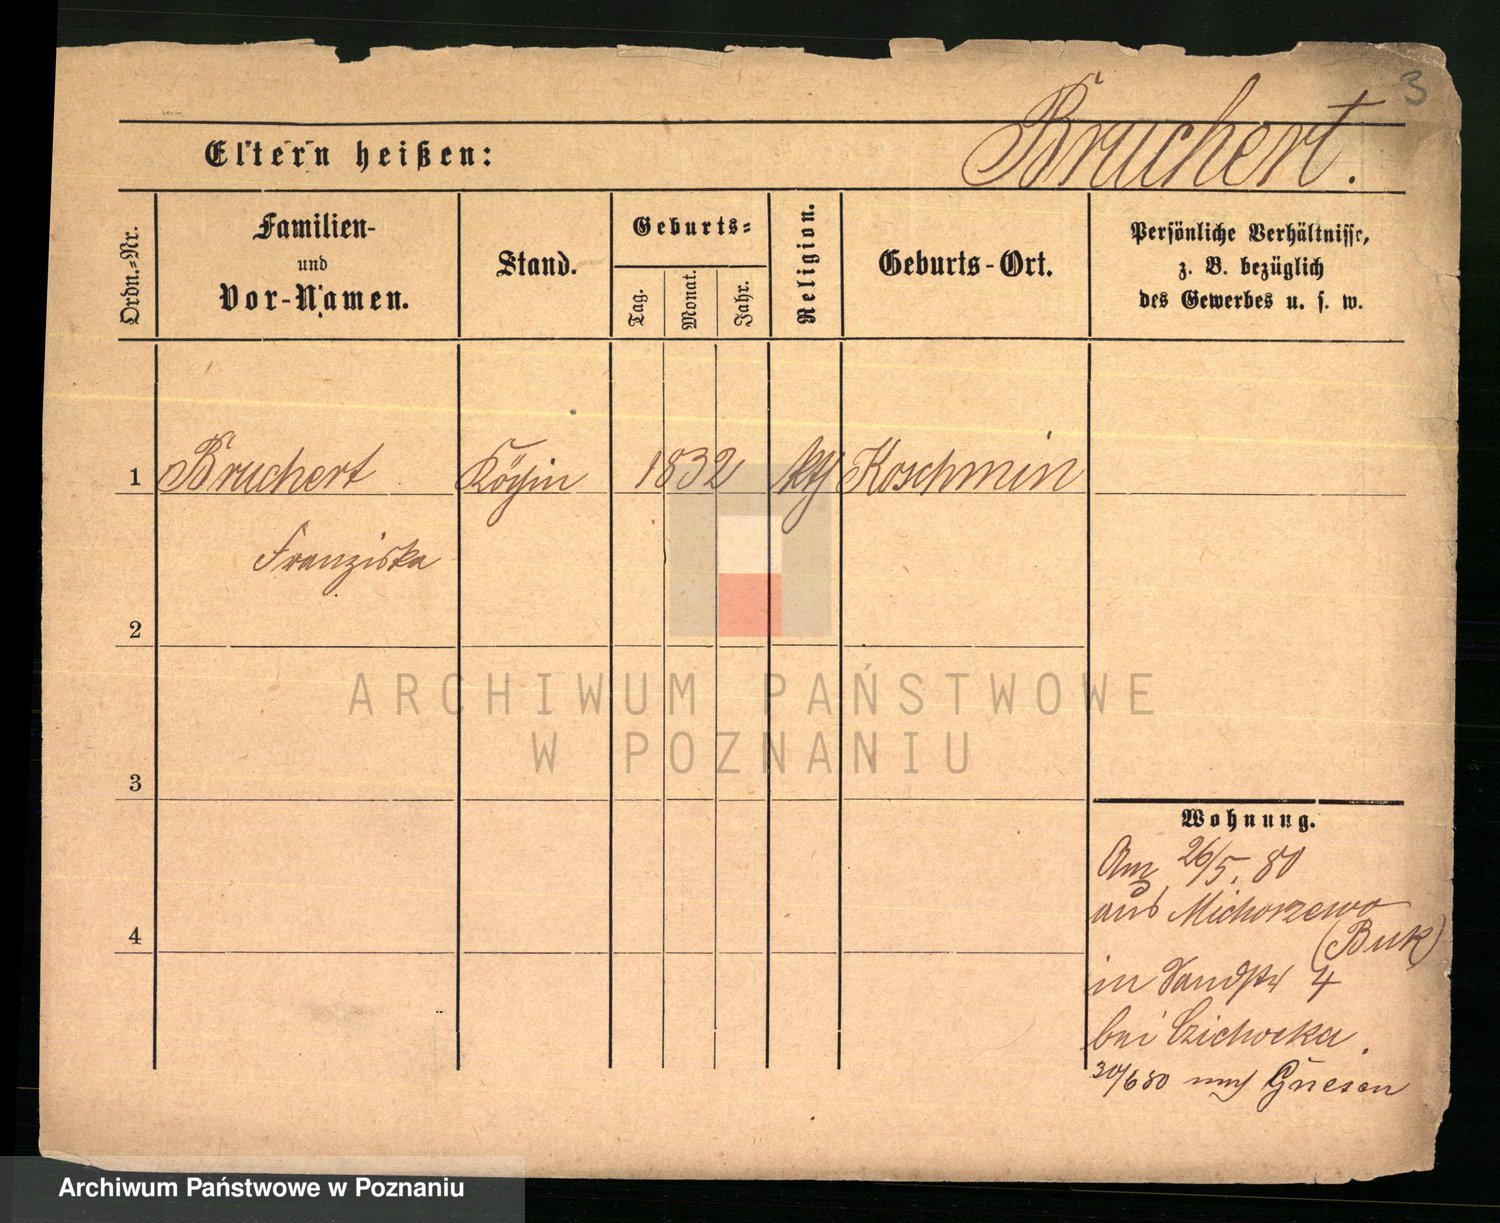 3
Bruchert.
Eltern heißen:
Ordn.-Nr.
Familien-
und
Vor-Namen.
Stand.
Geburts-
Tag.
Monat.
Jahr.
Religion.
Geburts-Ort.
Persönliche Verhältnisse,
z. B. bezüglich
des Gewerbes u. s. w.
1 Bruchert Köchin 1832 kth Koschmin
Franziska
2
3
4
Wohnung.
Am 26/5. 80
aus Michorzewo
(Buk)
in Sandstr 4
bei Czichocka.
30/6 80 nach Gnesen
ARCHIWUM PAŃSTWOWE
W POZNANIU
Archiwum Państwowe w Poznaniu